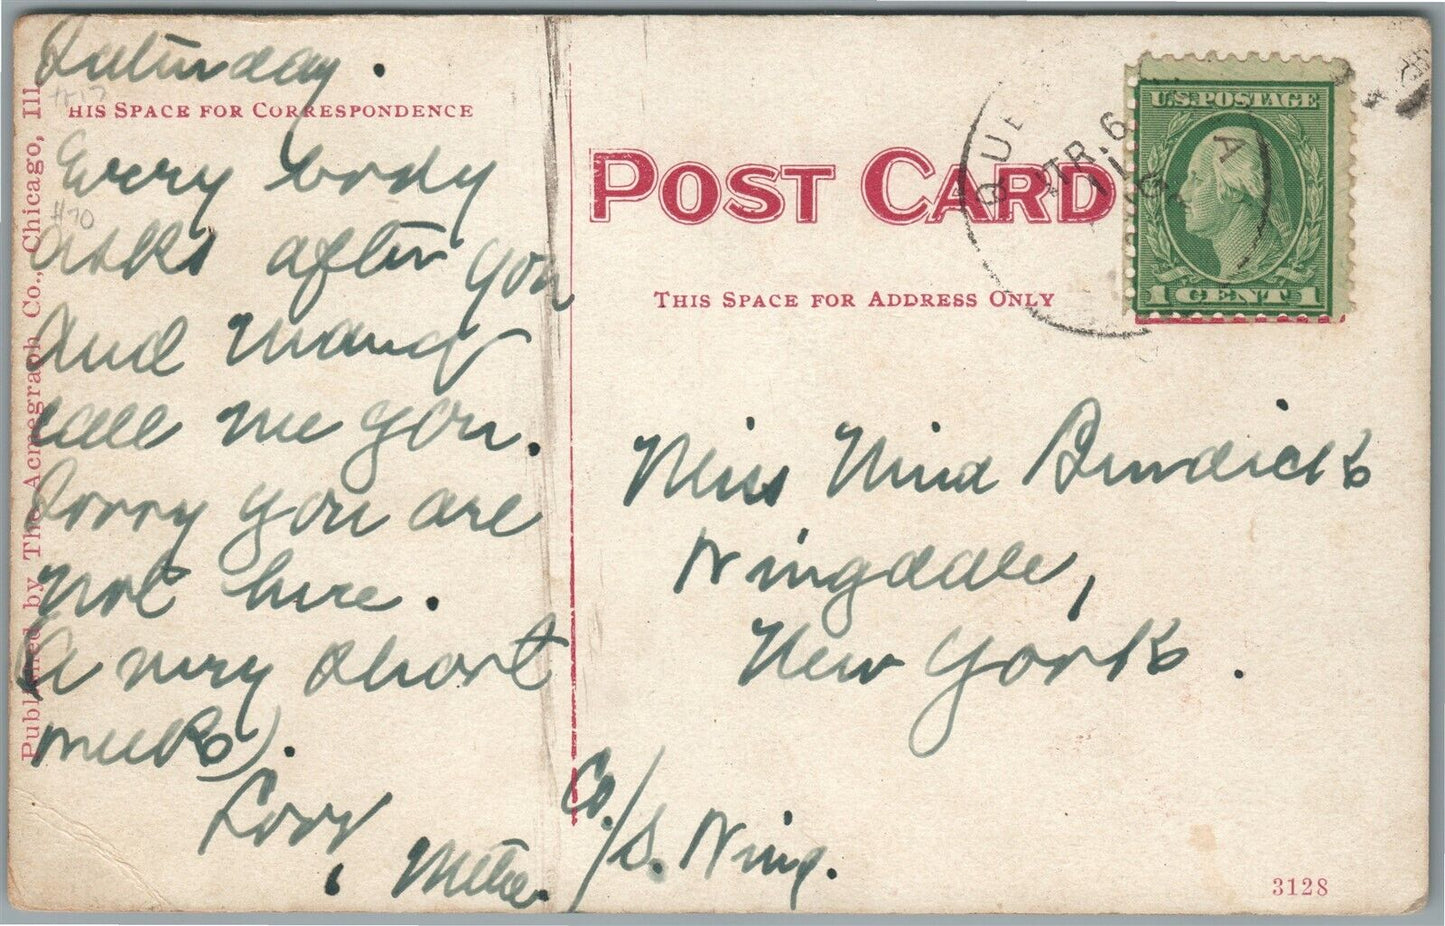 Saturday.
#17
HIS SPACE FOR CORRESPONDENCE
Every body
#70
asks after you
And many
call me you.
Sorry you are
not here.
(A very short
week).
Love,
Published by The Acmegraph Co., Chicago, Ill
POST CARD
THIS SPACE FOR ADDRESS ONLY
U.S. POSTAGE
1 CENT 1
Miss Nina Burdick
Wingdale,
New York.
Co/S. Wing.
3128